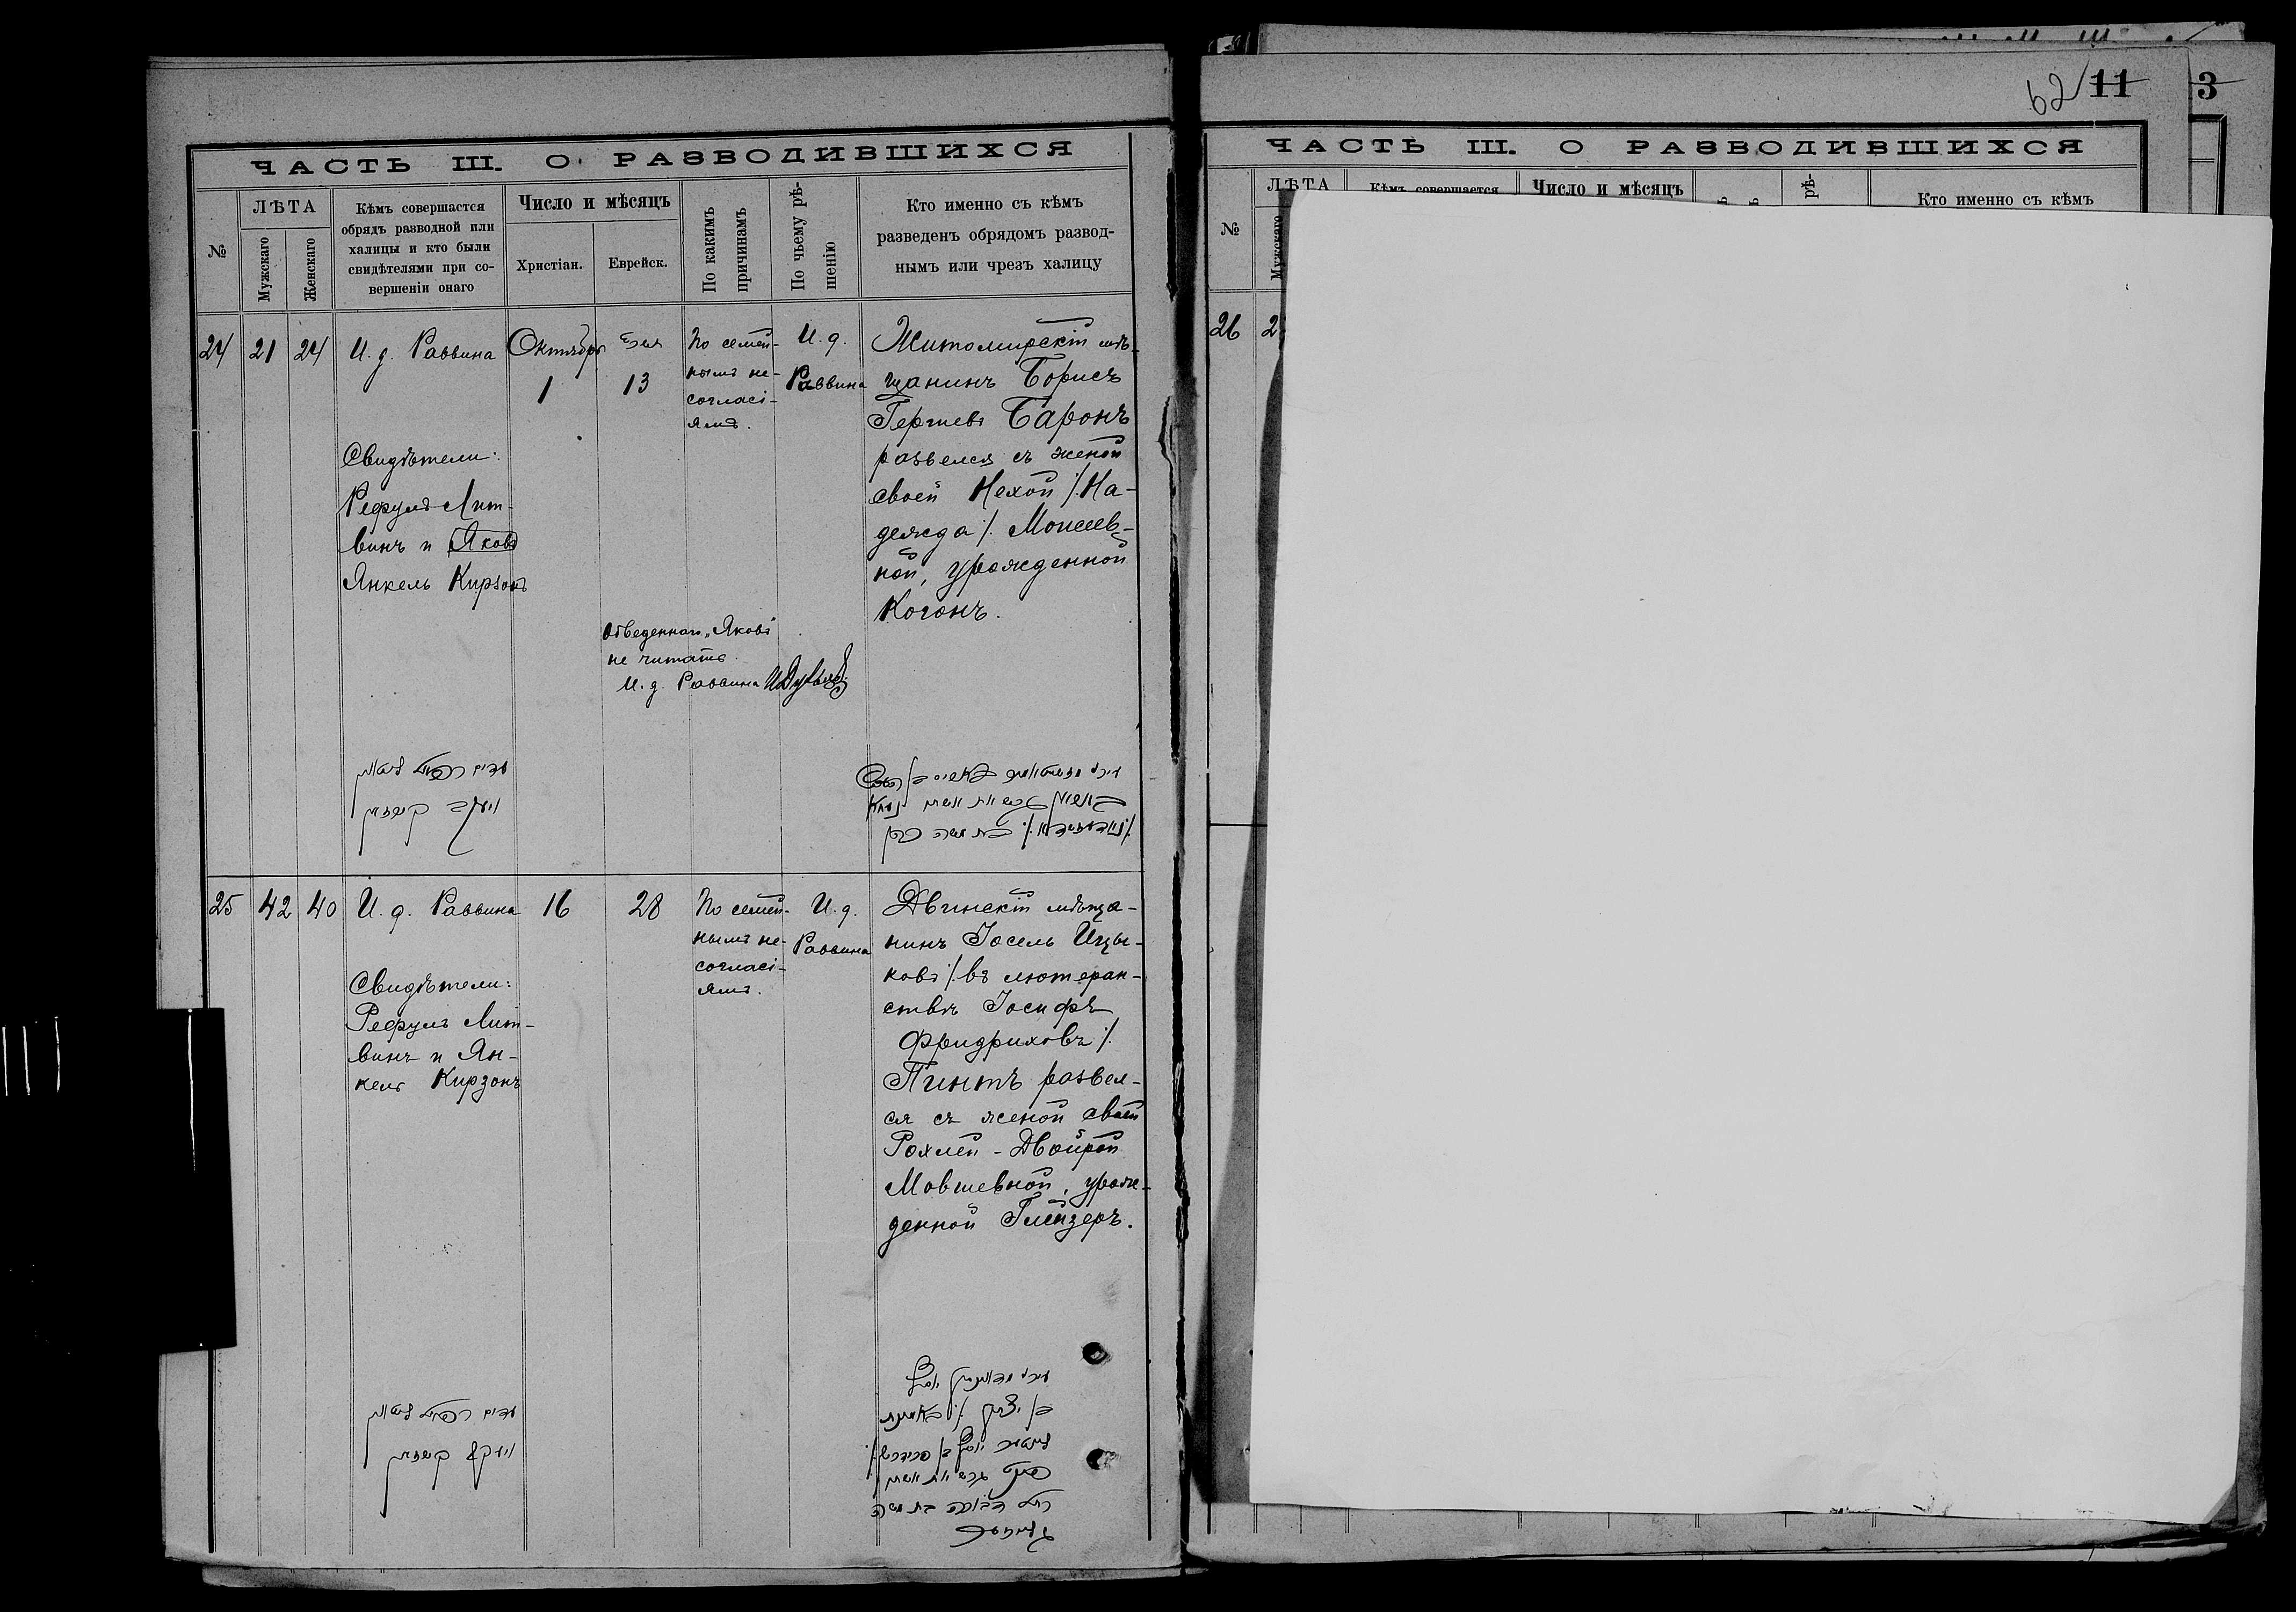 ЧАСТЬ III. О РАЗВОДИВШИХСЯ
№
ЛѢТА
Мужскаго
Женскаго
Кѣмъ совершается
обрядъ разводной или
халицы и кто были
свидѣтелями при со-
вершеніи онаго
Число и мѣсяцъ
Христіан.
Еврейск.
По какимъ
причинамъ
По чьему рѣ-
шенію
Кто именно съ кѣмъ
разведенъ обрядомъ развод-
нымъ или чрезъ халицу
24
21
24
И. д. Раввина
Свидѣтели:
Рефулъ Лит-
винъ и Яковъ
Янкель Кирзонъ
Октября
1
13
По семей-
нымъ не-
согласі-
ямъ.
И. д.
Раввина
Житомирскій мѣ-
щанинъ Борисъ
Гершевъ Баронъ
развелся съ женой
своей Нехой /. На-
дежда /. Моисеев-
ной, урожденной
Когонъ.
Обведенное „Яковъ"
не читать.
И. д. Раввина
עדים רפאל ליטווין
ויעקב קירזון
25
42
40
И. д. Раввина
Свидѣтели:
Рефулъ Лит-
винъ и Ян-
кель Кирзонъ
16
28
По семей-
нымъ не-
согласі-
ямъ.
И. д.
Раввина
Двинскій мѣща-
нинъ Іосель Ицы-
ковъ /. въ лютеран-
ствѣ Іосифъ
Фридриховъ /.
Пинтъ развел-
ся съ женой своей
Рохлей-Двойрой
Мовшевной, урож-
денной Глейзеръ.
עדים רפאל ליטווין
ויעקב קירזון
בן יצחק
רחל דבורה בת משה
62 11
3
ЧАСТЬ III. О РАЗВОДИВШИХСЯ
№
ЛѢТА
Мужскаго
Кѣмъ совершается
Число и мѣсяцъ
рѣ-
Кто именно съ кѣмъ
26
2